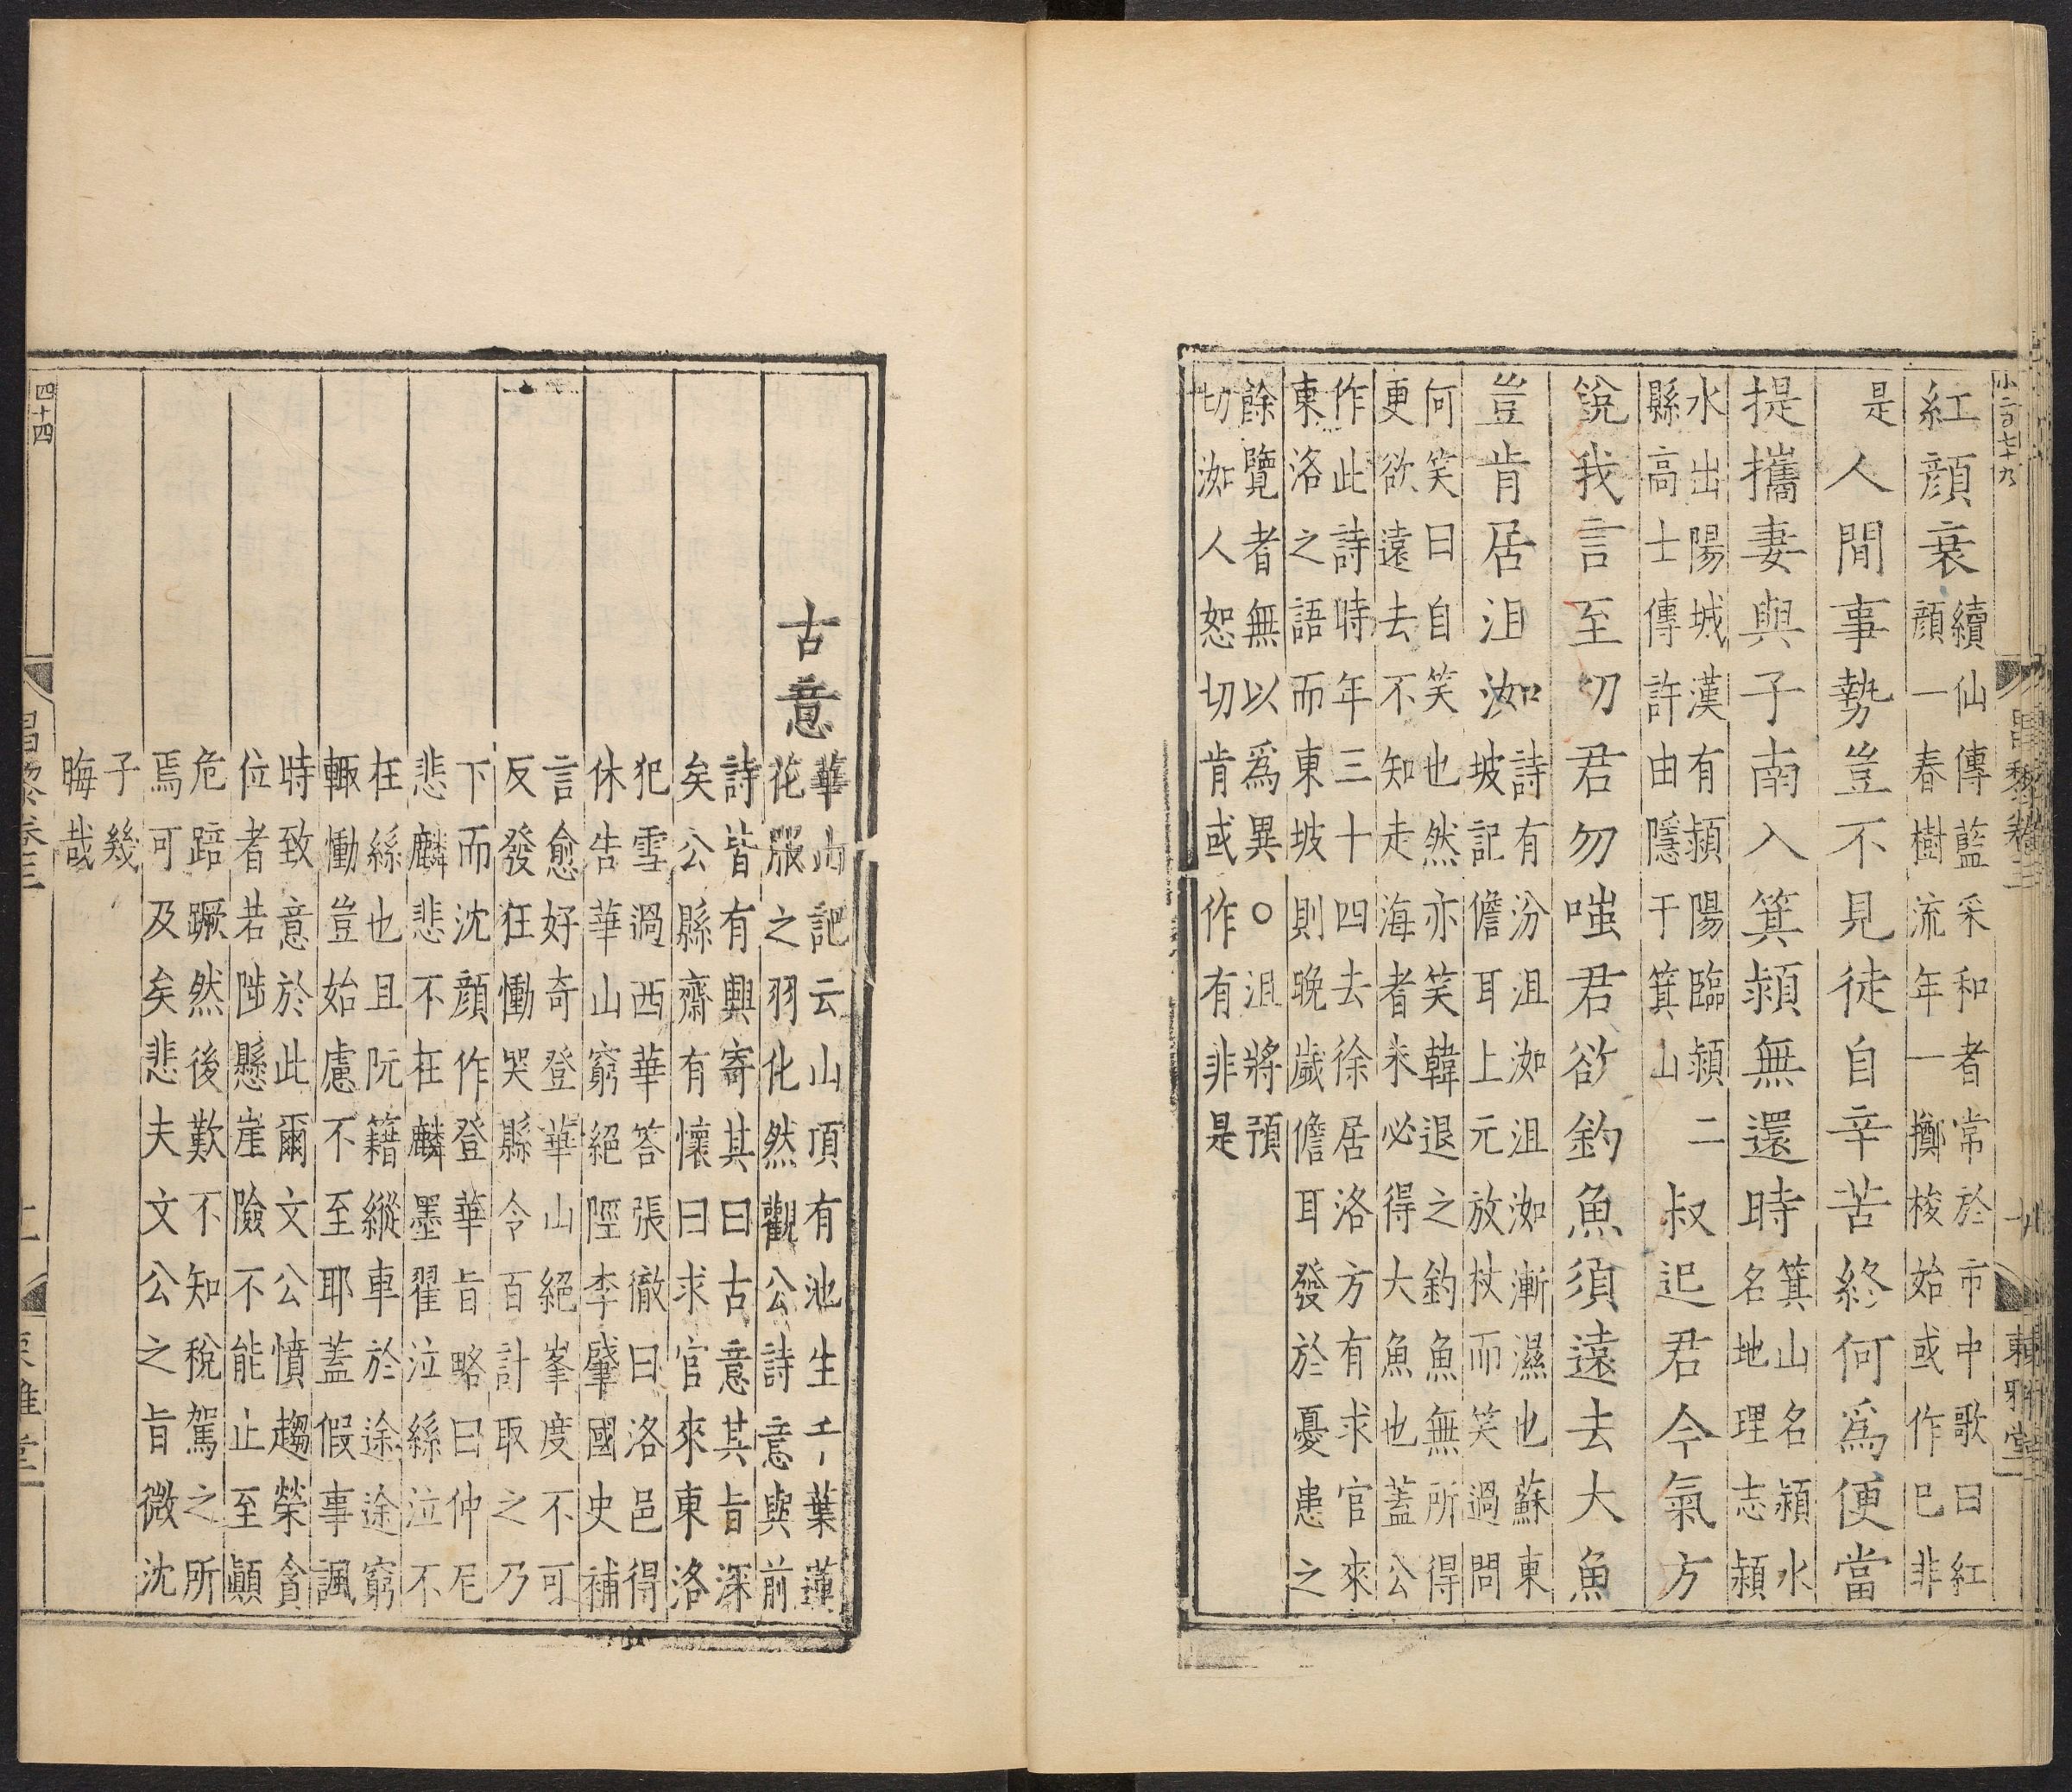 小二百七十九
紅顔衰續仙傳藍采和者常於市中歌曰紅
顔一春樹流年一擲梭始或作巳非
是人間事勢豈不見徒自辛苦終何爲便當
提攜妻與子南入箕潁無還時箕山名潁水
名地理志潁
水出陽城漢有潁陽臨潁二
縣高士傳許由隱于箕山叔迟君今氣方
銳我言至切君勿嗤君欲釣魚須遠去大魚
豈肯居沮洳詩有汾沮洳沮洳漸濕也蘇東
坡記儋耳上元放杖而笑過問
何笑曰自笑也然亦笑韓退之釣魚無所得
更欲遠去不知走海者未必得大魚也蓋公
作此詩時年三十四去徐居洛方有求官來
東洛之語而東坡則晚歲儋耳發於憂患之
餘覽者無以爲異○沮將預
切洳人恕切肯或作有非是
昌黎卷三
十九
東雅堂
古意
華山記云山頂有池生千葉蓮
花服之羽化然觀公詩意與前
詩皆有興寄其曰古意其旨深
矣公縣齋有懷曰求官來東洛
犯雪過西華答張徹曰洛邑得
休告華山窮絕陘李肇國史補
言愈好奇登華山絕峯度不可
反發狂慟哭縣令百計取之乃
下而沈顔作登華旨略曰仲尼
悲麟悲不在麟墨翟泣絲泣不
在絲也且阮籍縱車於途途窮
輒慟豈始慮不至耶蓋假事諷
時致意於此爾文公憤趨榮貪
位者若陟懸崖險不能止至顚
危踣蹶然後歎不知稅駕之所
焉可及矣悲夫文公之旨微沈
子幾
晦哉
四十四
昌黎卷三
東雅堂